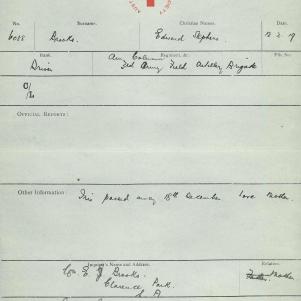 No. Surname. Christian Names. Date.
6088 Brooks. Edward Stephen 12.2.19
Rank. Regiment, &c. File No.
Driver Amy Column
3rd Army Field Artillery Brigade
OFFICIAL REPORTS:
Other Information: This passed away 18th December love Mother.
Inquirer's Name and Address. Relation.
E. Brooks. Mother
Clarence Park.
S. A